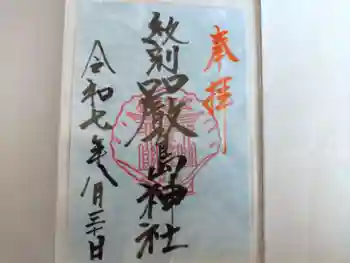 奉拝
紋別 厳島神社
令和七年八月三十日